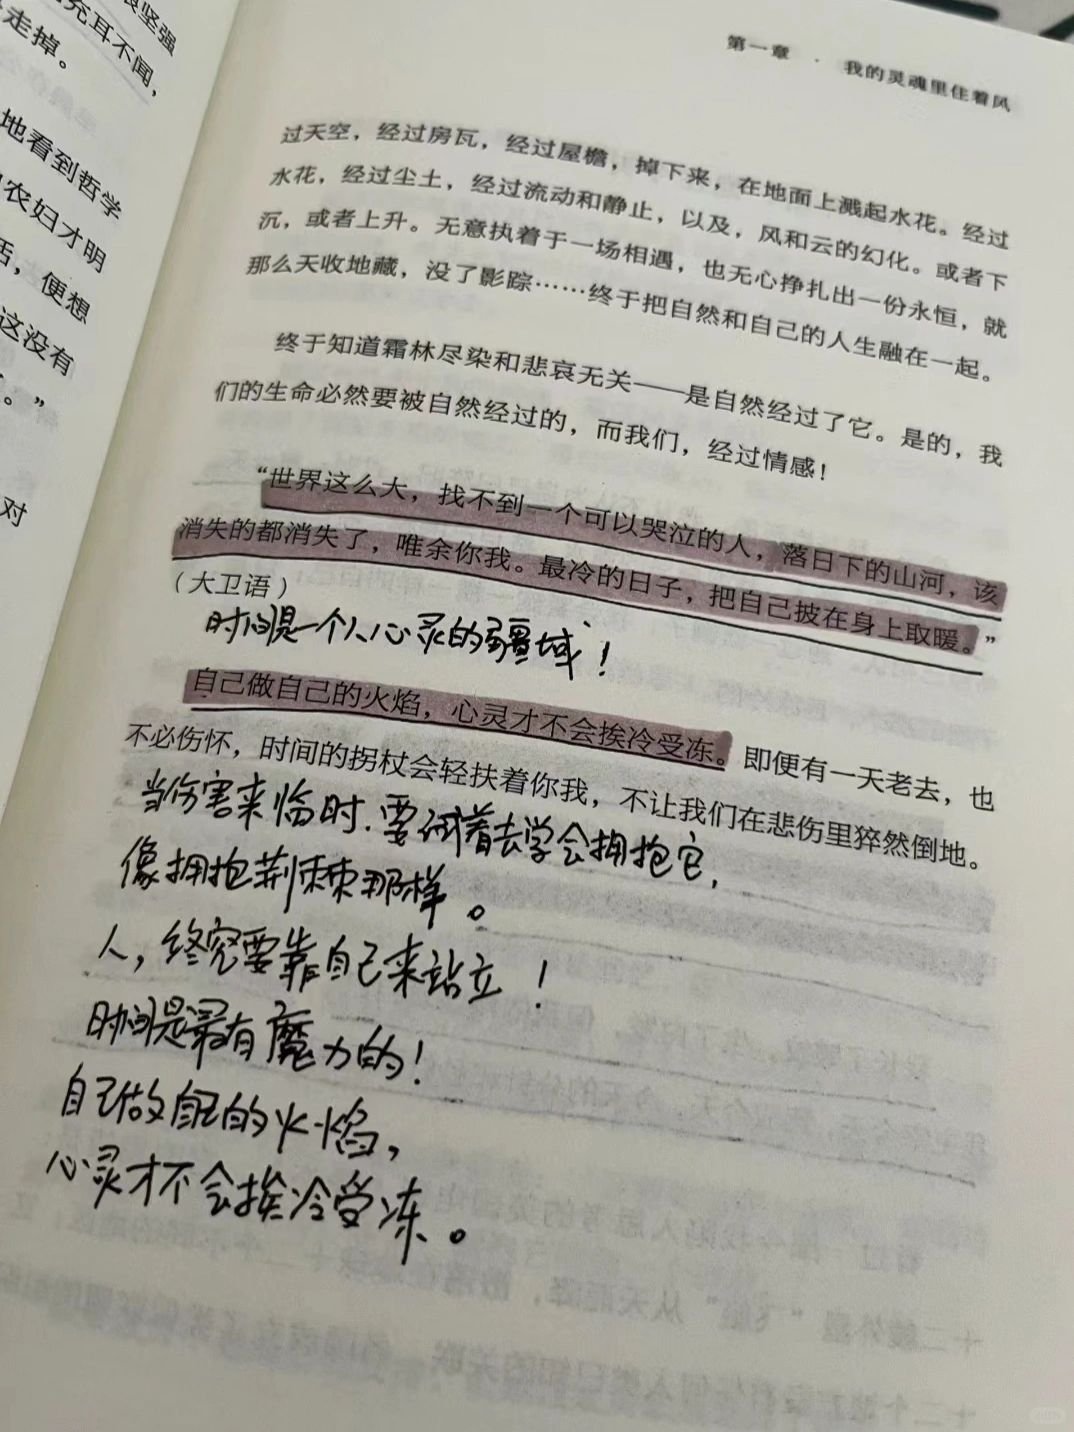 很坚强
充耳不闻，
走掉。
地看到哲学
农妇才明
活，便想
这没有
。”
对
第一章 · 我的灵魂里住着风
过天空，经过房瓦，经过屋檐，掉下来，在地面上溅起水花。经过
水花，经过尘土，经过流动和静止，以及，风和云的幻化。或者下
沉，或者上升。无意执着于一场相遇，也无心挣扎出一份永恒，就
那么天收地藏，没了影踪……终于把自然和自己的人生融在一起。
终于知道霜林尽染和悲哀无关——是自然经过了它。是的，我
们的生命必然要被自然经过的，而我们，经过情感！
“世界这么大，找不到一个可以哭泣的人，落日下的山河，该
消失的都消失了，唯余你我。最冷的日子，把自己披在身上取暖。”
（大卫语）
时间是一个人心灵的疆域！
自己做自己的火焰，心灵才不会挨冷受冻。即便有一天老去，也
不必伤怀，时间的拐杖会轻扶着你我，不让我们在悲伤里猝然倒地。
当伤害来临时，要试着去学会拥抱它，
像拥抱荆棘那样。
人，终究要靠自己来站立！
时间是最有魔力的！
自己做自己的火焰，
心灵才不会挨冷受冻。